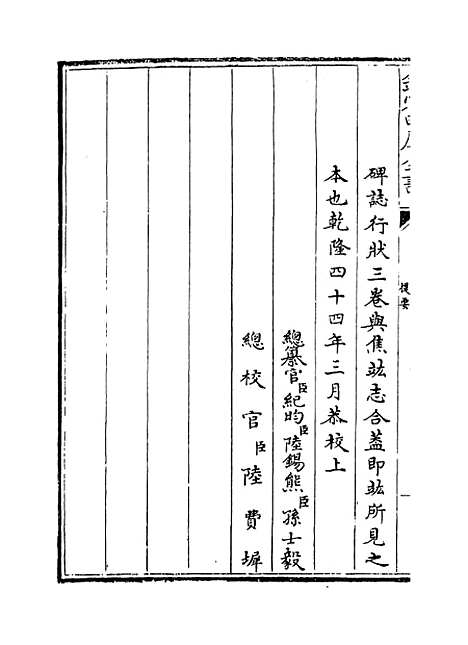 欽定四庫全書
提要
碑誌行狀三卷與焦竑志合蓋即竑所見之
本也乾隆四十四年三月恭校上
總纂官臣紀昀臣陸錫熊臣孫士毅
總校官臣陸費墀